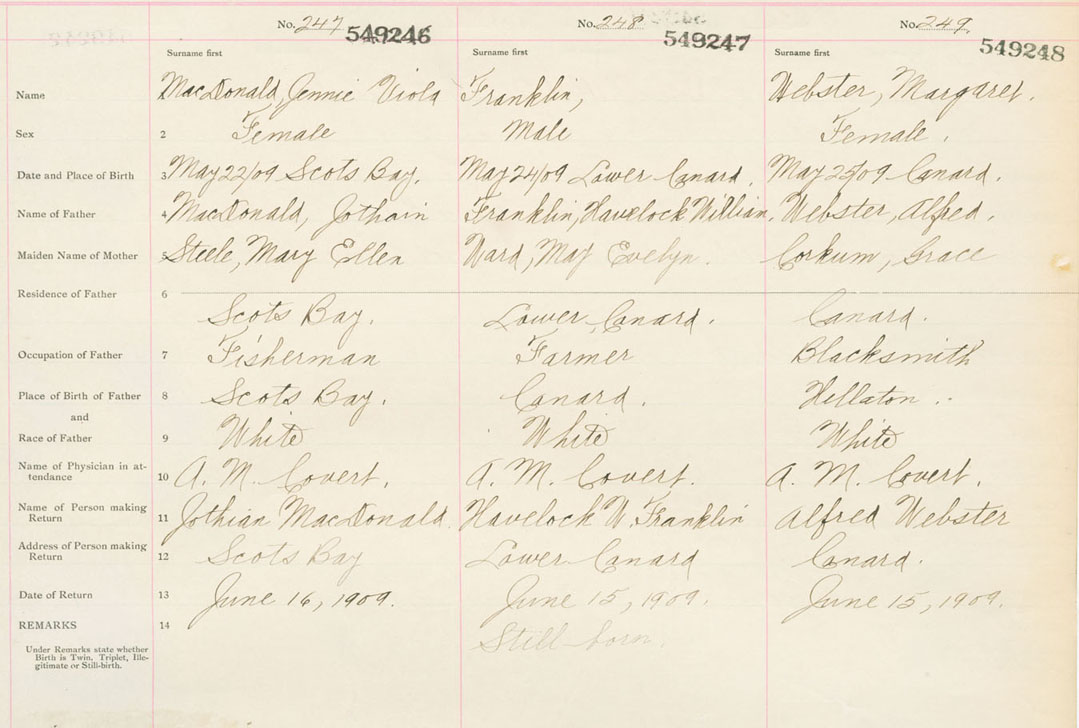 No. 247 549246 No. 248 549247 No. 249 549248
Surname first Surname first Surname first
Name MacDonald, Jennie Viola Franklin, Webster, Margaret.
Sex 2 Female Male Female.
Date and Place of Birth 3 May 22/09 Scots Bay. May 24/09 Lower Canard. May 25/09 Canard.
Name of Father 4 MacDonald, Jothain Franklin, Havelock William, Webster, Alfred.
Maiden Name of Mother 5 Steele, Mary Ellen Ward, May Evelyn. Corkum, Grace
Residence of Father 6
Scots Bay. Lower Canard. Canard.
Occupation of Father 7 Fisherman Farmer Blacksmith
Place of Birth of Father 8 Scots Bay. Canard. Hillaton..
and
Race of Father 9 White White White
Name of Physician in at-
tendance 10 A. M. Covert. A. M. Covert. A. M. Covert.
Name of Person making
Return 11 Jothian MacDonald. Havelock W. Franklin Alfred Webster
Address of Person making
Return 12 Scots Bay Lower Canard Canard.
Date of Return 13 June 16, 1909. June 15, 1909. June 15, 1909.
REMARKS 14 Still-born.
Under Remarks state whether
Birth is Twin, Triplet, Ille-
gitimate or Still-birth.